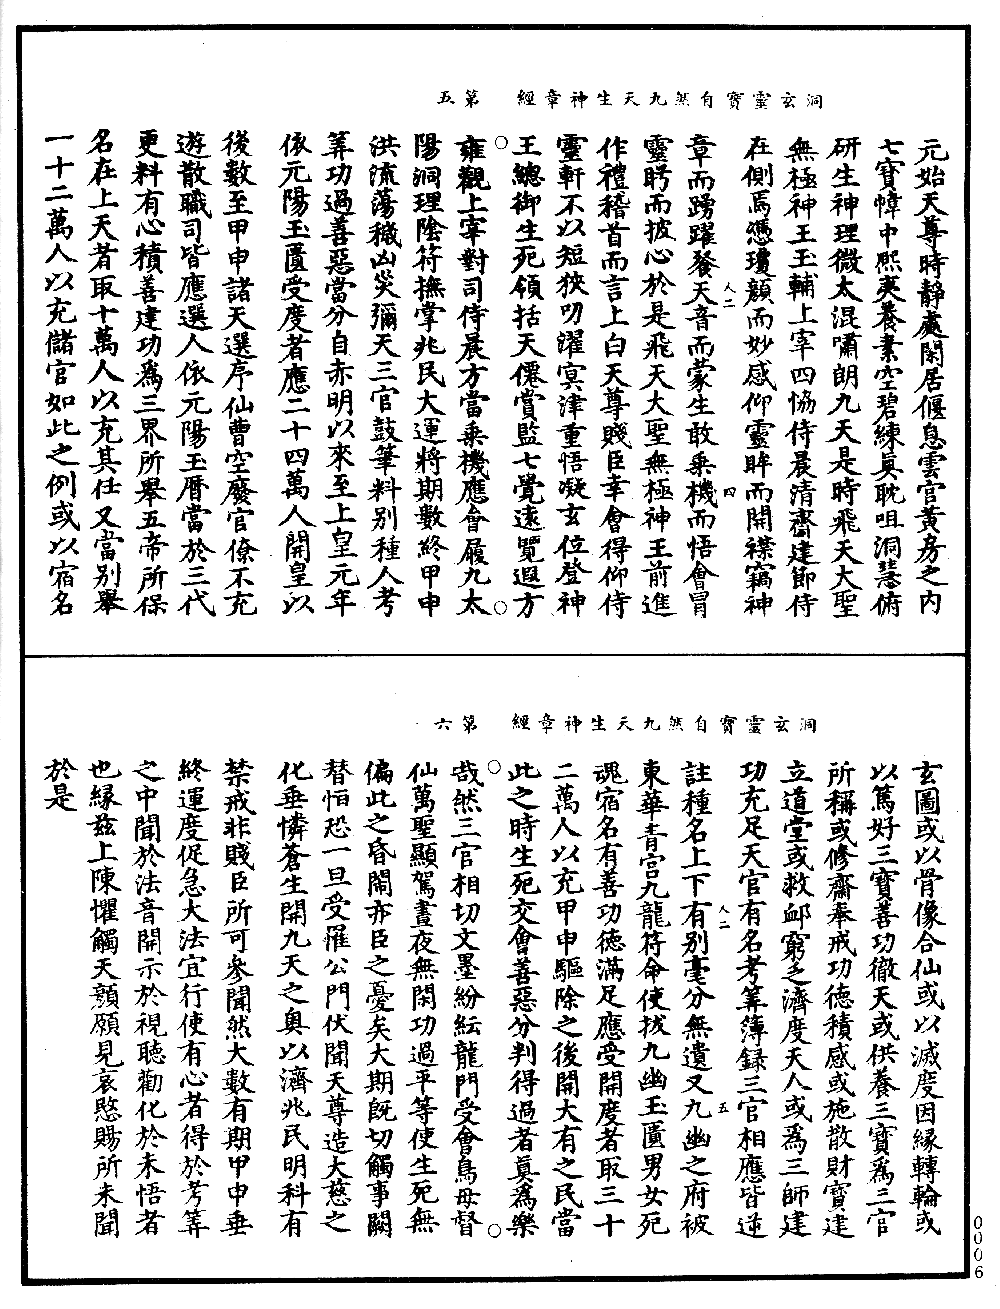 洞玄靈寶自然九天生神章經　第五
元始天尊時靜處閑居偃息雲官黃房之內
七寶幃中熙爽養素空碧練眞耽咀洞慧俯
研生神理微太混嘯朗九天是時飛天大聖
無極神王玉輔上宰四協侍晨清齋建節侍
在側焉慿瓊顏而妙感仰靈眸而開襟竊神
章而踴躍發天音而蒙生敢乗機而悟會冒
人二　四
靈眄而披心於是飛天大聖無極神王前進
作禮稽首而言上白天尊賤臣幸會得仰侍
靈軒不以短狹叨濯㝠津重悟凝玄位登神
王總御生死領括天僊賞監七覺遠覽遐方
雍觀上宰對司侍晨方當乗機應會履九太
陽洞理陰符撫掌兆民大運將期數終甲申
洪流蕩穢凶災彌天三官鼓筆料別種人考
筭功過善惡當分自赤明以來至上皇元年
依元陽玉匱受度者應二十四萬人開皇以
後數至甲申諸天選序仙曹空廢官僚不充
遊散職司皆應選人依元陽玉曆當於三代
更料有心積善建功爲三界所舉五帝所保
名在上天者取十萬人以充其任又當別舉
一十二萬人以充儲官如此之例或以宿名
洞玄靈寶自然九天生神章經　第六
玄圖或以骨像合仙或以滅度因縁轉輪或
以篤好三寶善功徹天或供養三寶爲三官
所稱或修齋奉戒功德積感或施散財寶建
立道堂或救䘏窮乏濟度天人或爲三師建
功充足天官有名考筭簿録三官相應皆逆
註種名上下有別毫分無遺又九幽之府被
人二　五
東華青宮九龍符命使拔九幽玉匱男女死
魂宿名有善功德滿足應受開度者取三十
二萬人以充甲申驅除之後開大有之民當
此之時生死交會善惡分判得過者眞爲樂
哉然三官相切文墨紛紜龍門受會鳥母督
仙萬聖顯駕晝夜無閑功過平等使生死無
偏此之昏閙亦臣之憂矣大期既切觸事闕
替怕恐一旦受罹公門伏聞天尊造大慈之
化垂憐蒼生開九天之奥以濟兆民明科有
禁戒非賤臣所可參聞然大數有期甲申垂
終運度促急大法宜行使有心者得於考筭
之中聞於法音開示於視聽勸化於未悟者
也縁兹上陳懼觸天顔願見哀愍賜所未聞
於是
0006